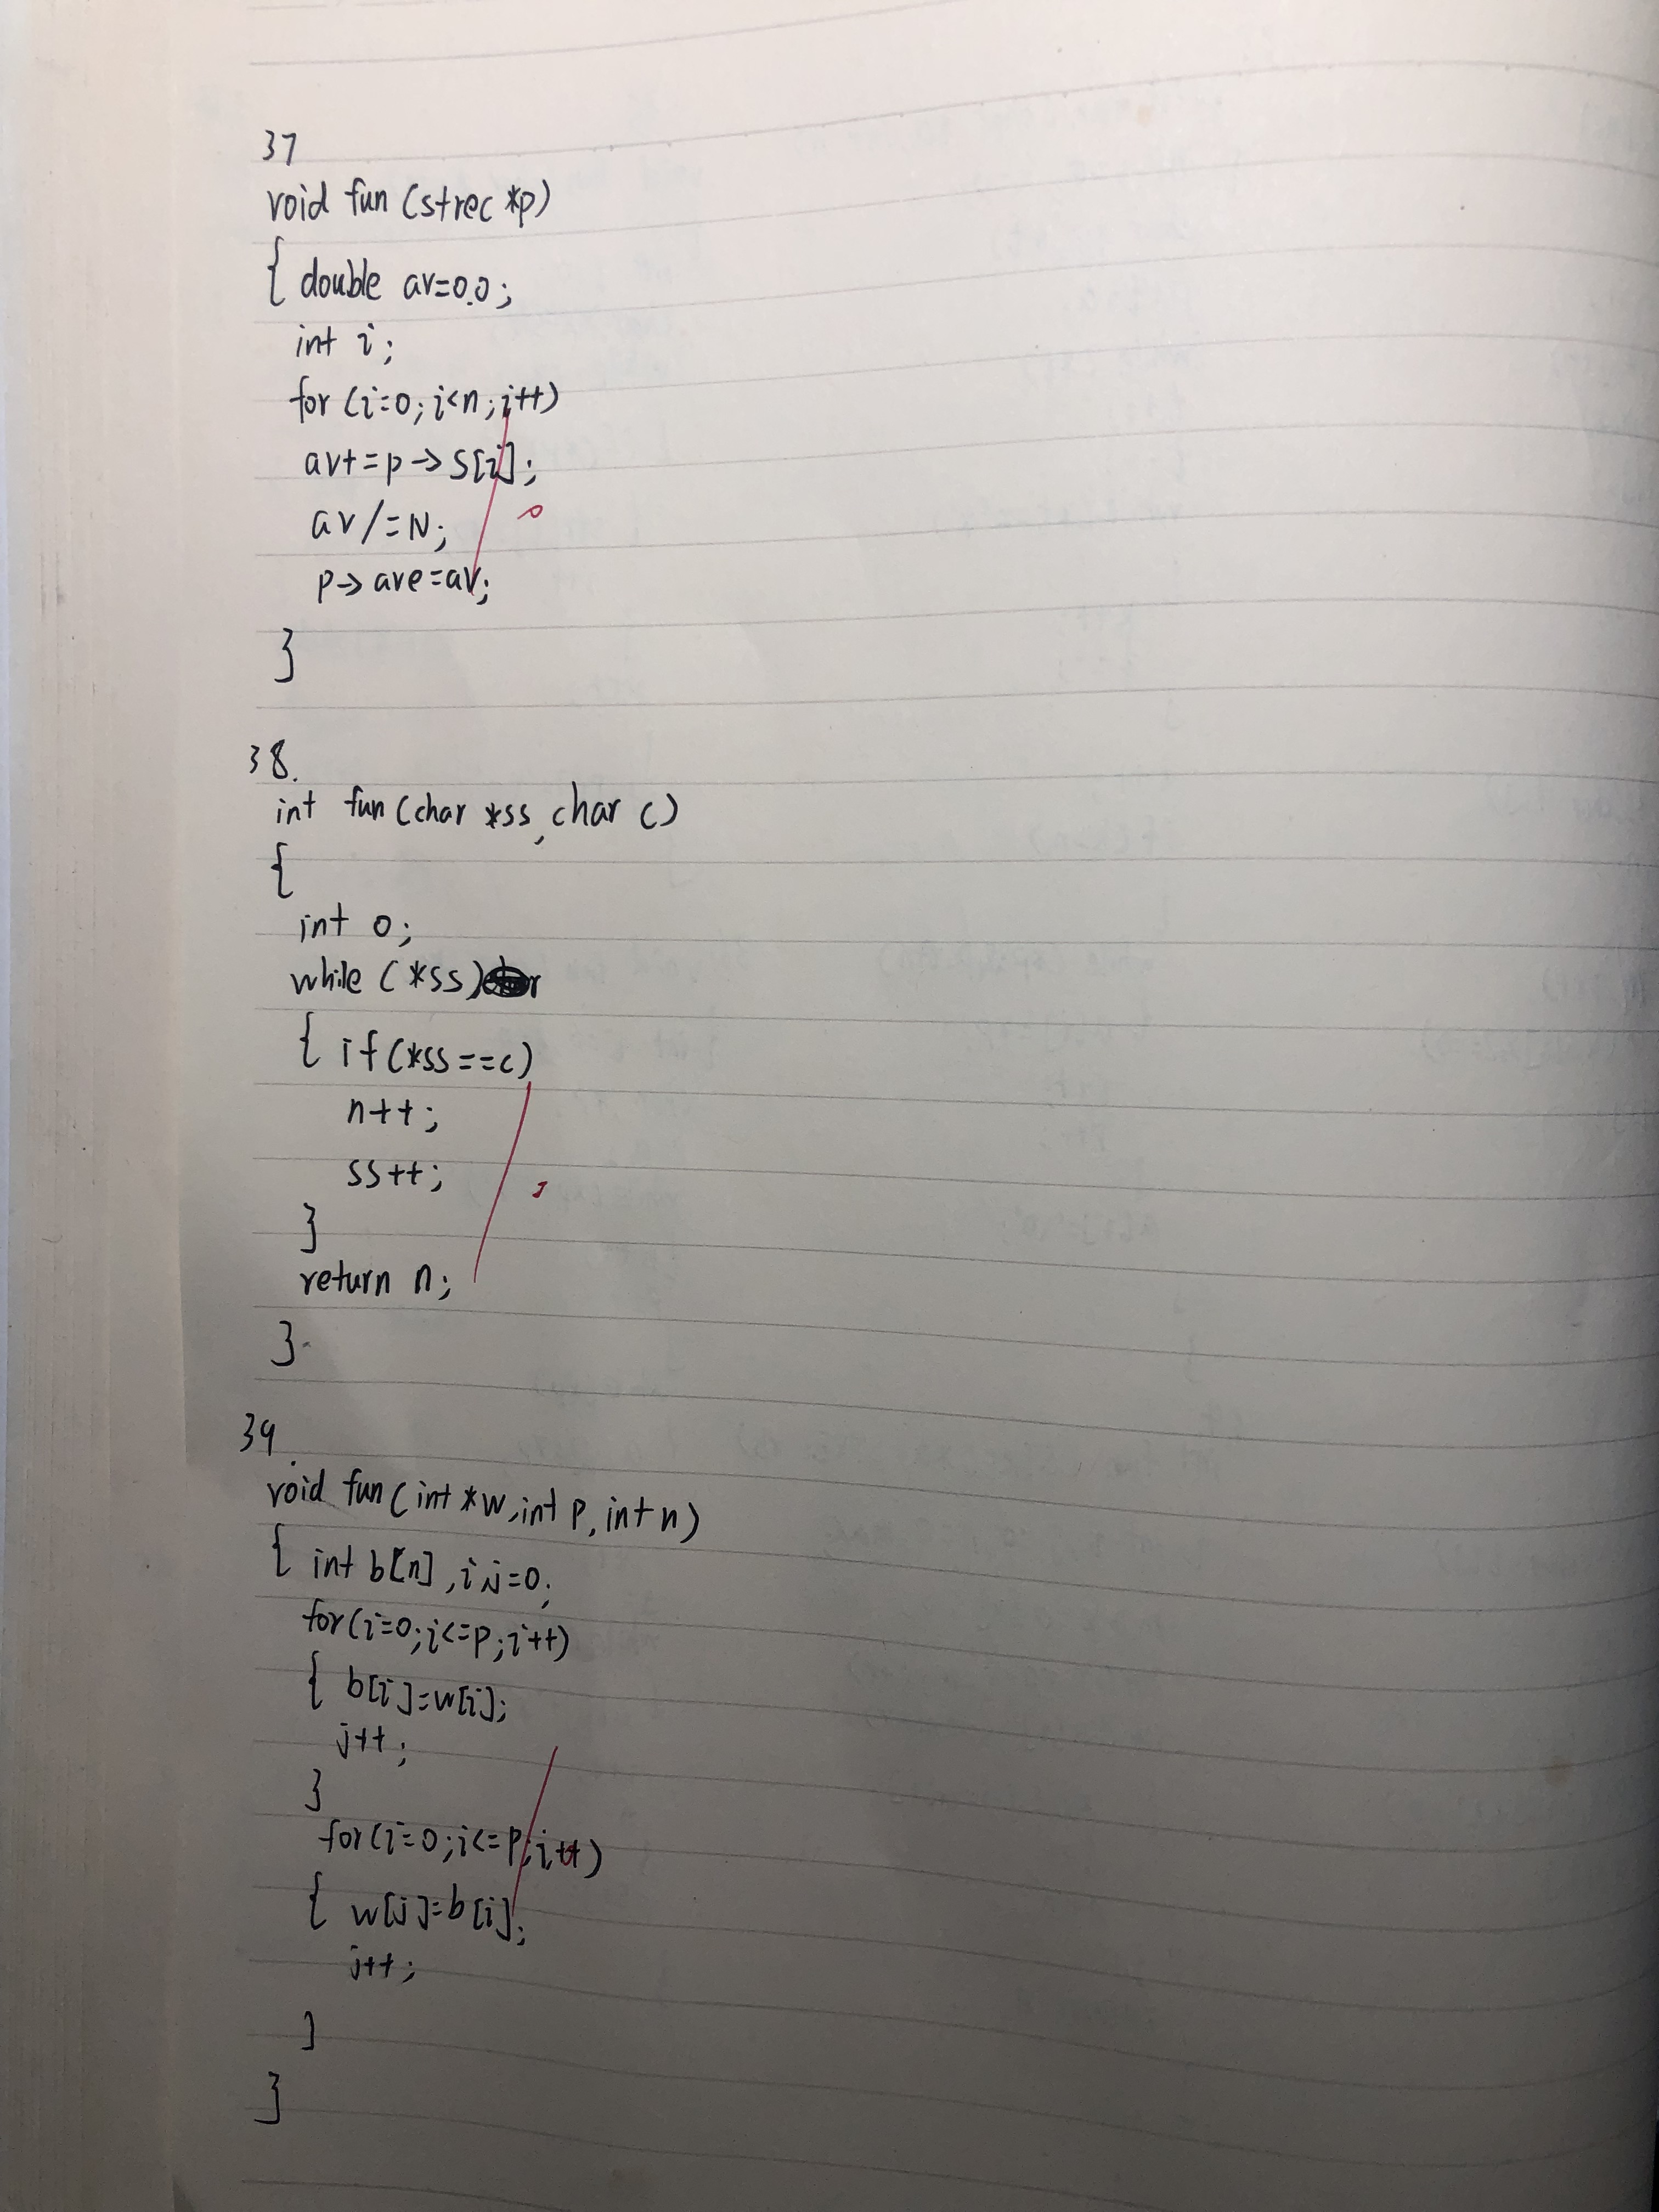 37
void fun (strec *p)
{ double av=0.0;
int i;
for (i=0; i<n; i++)
av+=p->s[i];
av/=N;
p->ave=av;
}
38.
int fun (char *ss, char c)
{
int 0;
while (*ss)
{ if(*ss==c)
n++;
ss++;
}
return n;
}
39.
void fun(int *w, int p, int n)
{ int b[n], i, j=0;
for(i=0; i<=p; i++)
{ b[i]=w[i];
j++;
}
for(i=0; i<=p; i++)
{ w[j]=b[i];
j++;
}
}